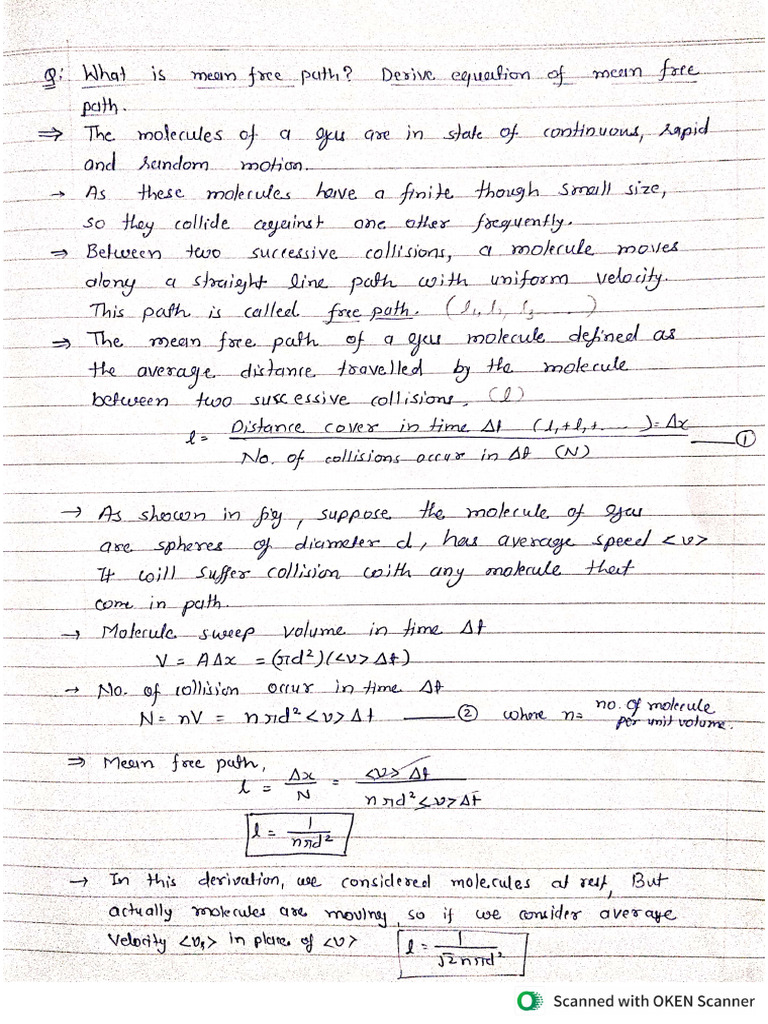 Q: What is mean free path? Derive equation of mean free
path.
⇒ The molecules of a gas are in state of continuous, rapid
and random motion.
→ As these molecules have a finite though small size,
so they collide against one other frequently.
⇒ Between two successive collisions, a molecule moves
along a straight line path with uniform velocity.
This path is called free path. (l₁, l₂, l₃ .....)
⇒ The mean free path of a gas molecule defined as
the average distance travelled by the molecule
between two successive collisions. (l)
l = Distance cover in time Δt (l₁+l₂+.....) = Δx / No. of collisions occur in Δt (N) —— ①
→ As shown in fig, suppose the molecule of gas
are spheres of diameter d, has average speed <v>
It will suffer collision with any molecule that
com in path.
→ Molecule sweep volume in time Δt
V = AΔx = (πd²)(<v>Δt)
→ No. of collision occur in time Δt
N = nV = nπd²<v>Δt —— ② where n= no. of molecule per unit volume.
⇒ Mean free path,
l = Δx / N = <v>Δt / nπd²<v>Δt
l = 1 / nπd²
→ In this derivation, we considered molecules at rest, But
actually molecules are moving, so if we consider average
velocity <vᵣ> in place of <v> l = 1 / √2nπd²
Scanned with OKEN Scanner